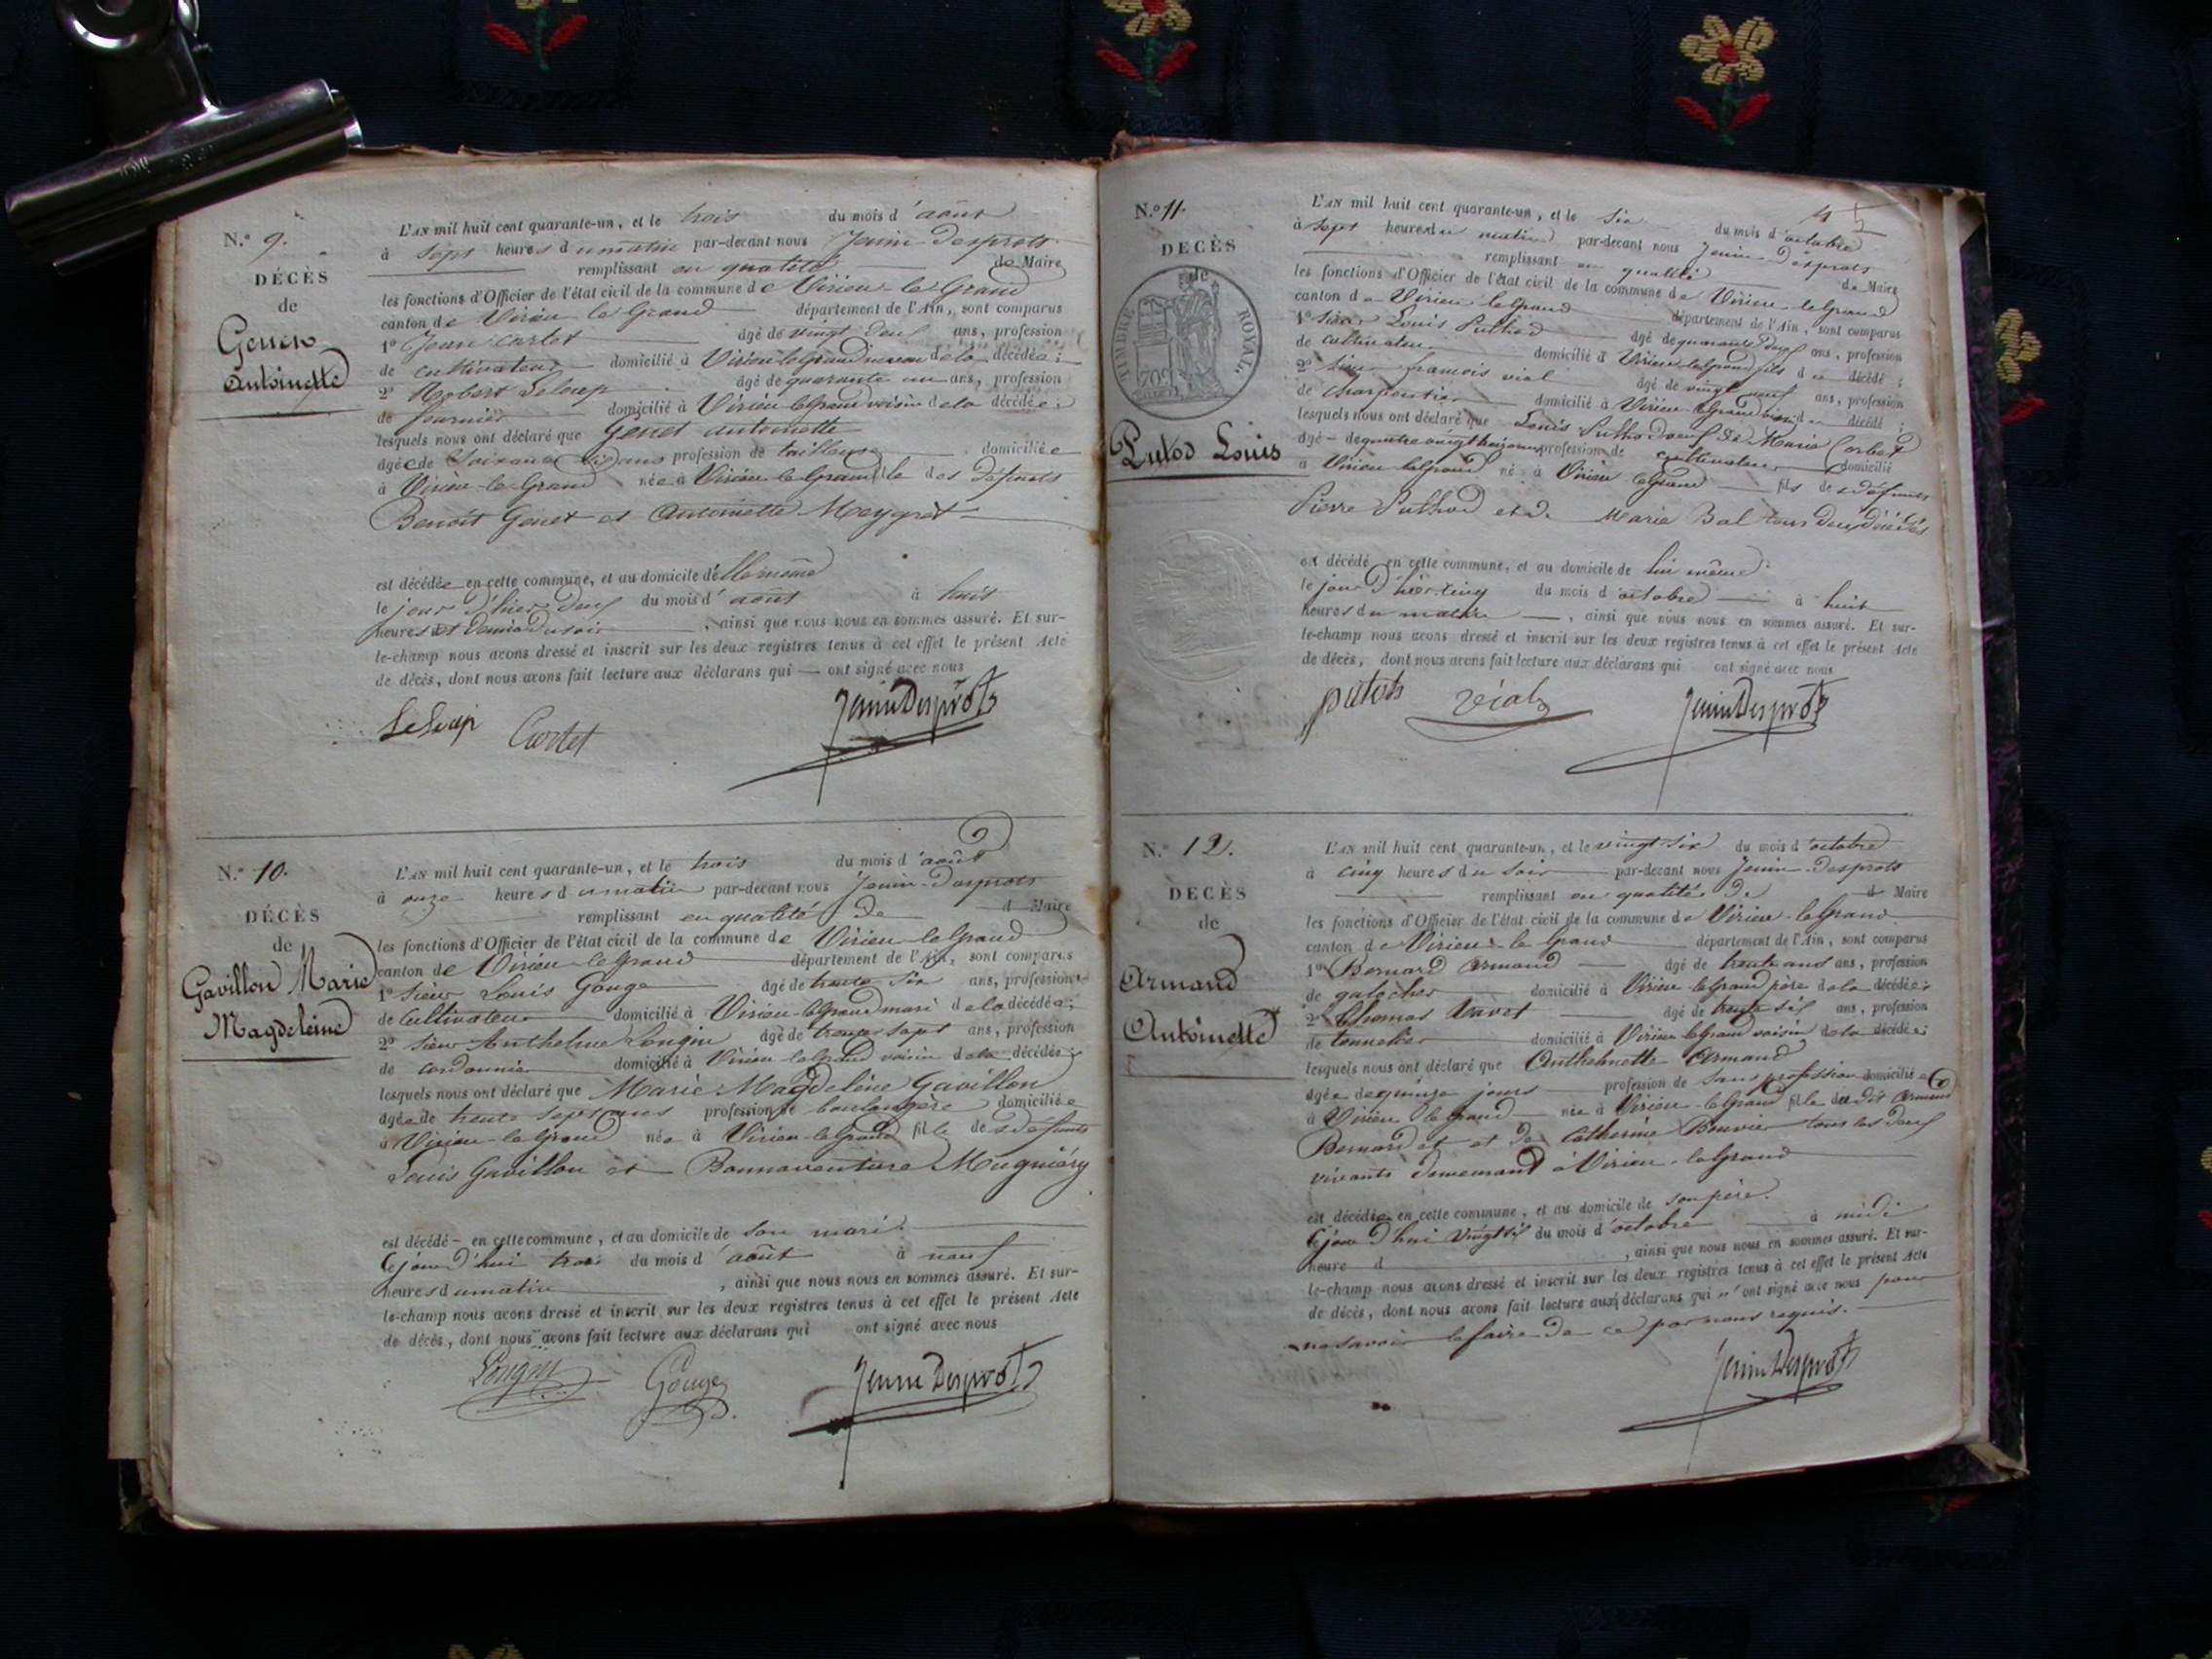 N.o 9.
DÉCÈS
de
Genet
Antoinette
L'AN mil huit cent quarante-un, et le trois du mois d'août
à sept heures du matin par-devant nous Jenin-Desprots
remplissant en qualité de Maire
les fonctions d'Officier de l'état civil de la commune de Virieu-le-Grand
canton de Virieu le Grand département de l'Ain, sont comparus
1o Jean Cartet âgé de vingt neuf ans, profession
de cultivateur domicilié à Virieu-le-Grand neveu de la décédée;
2o Robert Leloup âgé de quarante un ans, profession
de fournier domicilié à Virieu le Grand voisin de la décédée;
lesquels nous ont déclaré que Genet antoinette
âgée de Soixante dix ans profession de tailleuse domiciliée
à Virieu-le-Grand née à Virieu-le-Grand fille des défunts
Benoît Genet et Antoinette Meygret
est décédée en cette commune, et au domicile d'elle même
le jour d'hier deux du mois d'août à huit
heures et demie du soir, ainsi que nous nous en sommes assuré. Et sur-
le-champ nous avons dressé et inscrit sur les deux registres tenus à cet effet le présent Acte
de décès, dont nous avons fait lecture aux déclarans qui ont signé avec nous
LeLoup Cartet JeninDesprots
N.o 10.
DÉCÈS
de
Gavillon Marie
Magdeleine
L'AN mil huit cent quarante-un, et le trois du mois d'août
à onze heures du matin par-devant nous Jenin-Desprots
remplissant en qualité de d Maire
les fonctions d'Officier de l'état civil de la commune de Virieu-le Grand
canton de Virieu-le Grand département de l'Ain, sont comparus
1o Sieur Louis Gouge âgé de trente six ans, profession
de Cultivateur domicilié à Virieu-le Grand mari de la décédée;
2o Sieur Anthelme Longin âgé de trente sept ans, profession
de cordonnier domicilié à Virieu-le Grand voisin de la décédée;
lesquels nous ont déclaré que Marie Magdeleine Gavillon
âgée de trente sept ans profession de boulangère domiciliée
à Virieu-le Grand née à Virieu-le Grand fille des défunts
Louis Gavillon et Bonnaventure Mugniéry
est décédé en cette commune, et au domicile de son mari.
le jour d'hui trois du mois d'août à neuf
heures du matin, ainsi que nous nous en sommes assuré. Et sur-
le-champ nous avons dressé et inscrit sur les deux registres tenus à cet effet le présent Acte
de décès, dont nous avons fait lecture aux déclarans qui ont signé avec nous
Longin Gouge Jenin Desprots
4 5
N.o 11.
DÉCÈS
de
TIMBRE ROYAL
Putod Louis
L'AN mil huit cent quarante-un, et le six du mois d'octobre
à sept heures du matin par-devant nous Jenin-Desprots
remplissant en qualité de Maire
les fonctions d'Officier de l'état civil de la commune de Virieu-le Grand
canton de Virieu le Grand département de l'Ain, sont comparus
1o Sieur Louis Puthod âgé de quarante deux ans, profession
de cultivateur domicilié à Virieu-le Grand fils du décédé;
2o Sieur francois vial âgé de vingt neuf ans, profession
de charpentier domicilié à Virieu-le Grand voisin du décédé;
lesquels nous ont déclaré que Louis Puthod veuf de Marie Corbet
âgé de quatre vingt ans profession de cultivateur domicilié
à Virieu le Grand né à Virieu le Grand fils des défunts
Pierre Puthod et de Marie Bal tous deux décédés
est décédé en cette commune, et au domicile de lui même
le jour d'hier cinq du mois d'octobre à huit
heures du matin, ainsi que nous nous en sommes assuré. Et sur-
le-champ nous avons dressé et inscrit sur les deux registres tenus à cet effet le présent Acte
de décès, dont nous avons fait lecture aux déclarans qui ont signé avec nous
vial JeninDesprots
N.o 12.
DÉCÈS
de
Armand
Antoinette
L'AN mil huit cent quarante-un, et le vingt-six du mois d'octobre
à cinq heures du soir par-devant nous Jenin-Desprots
remplissant en qualité de d Maire
les fonctions d'Officier de l'état civil de la commune de Virieu-le Grand
canton de Virieu-le Grand département de l'Ain, sont comparus
1o Bernard Armand âgé de trente ans ans, profession
de galocher domicilié à Virieu-le Grand père de la décédée;
2o Thomas Navet âgé de trente six ans, profession
de tonnelier domicilié à Virieu-le Grand voisin de la décédée;
lesquels nous ont déclaré que Anthelmette Armand
âgée de quinze jours profession de sans profession domiciliée
à Virieu le Grand née à Virieu-le Grand fille du dit Armand
Bernard et et de Catherine Bouvier tous les deux
vivants demeurant à Virieu-le Grand
est décédée en cette commune, et au domicile de son père.
le jour d'hui vingt six du mois d'octobre à midi
heure d, ainsi que nous nous en sommes assuré. Et sur-
le-champ nous avons dressé et inscrit sur les deux registres tenus à cet effet le présent Acte
de décès, dont nous avons fait lecture aux déclarans qui n'ont signé avec nous pour
ne savoir le faire de ce par nous requis.
JeninDesprots